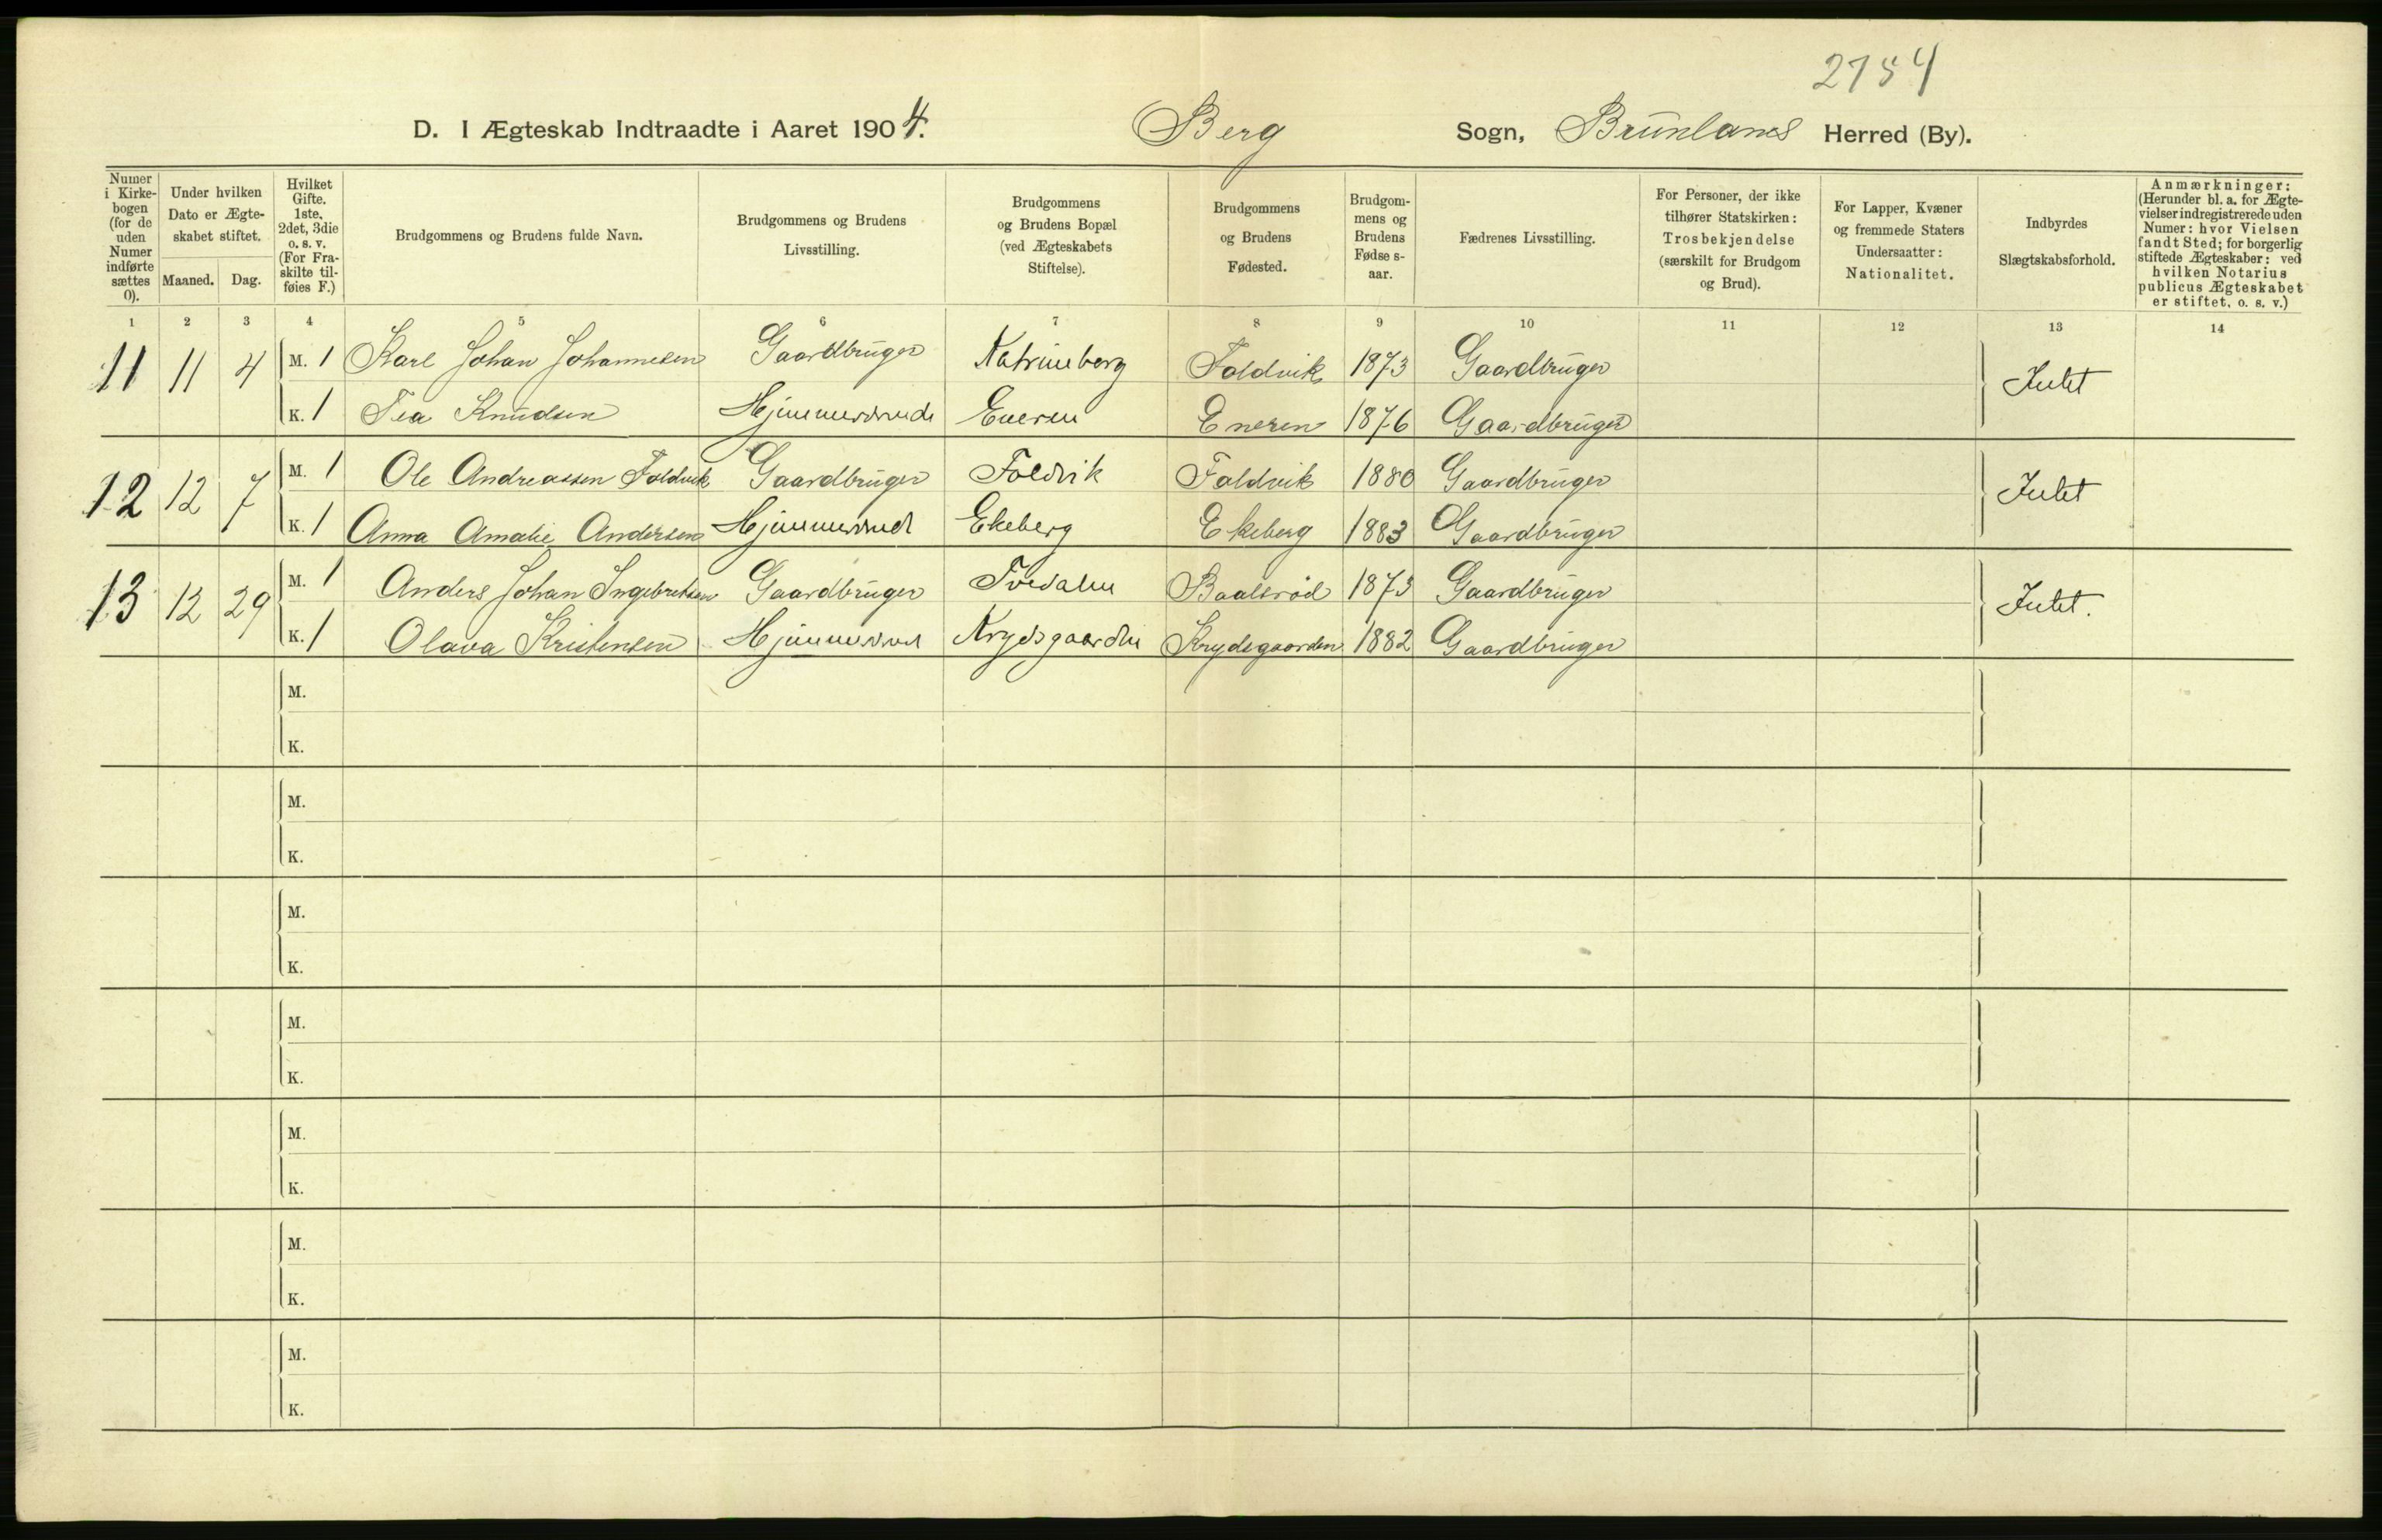 2754
D. I Ægteskab Indtraadte i Aaret 1904. Berg Sogn, Brunlanes Herred (By).
Numer i Kirke-bogen (for de uden Numer indførte sættes 0).
Under hvilken Dato er Ægte-skabet stiftet.
Maaned. Dag.
Hvilket Gifte. 1ste, 2det, 3die o. s. v. (For Fra-skilte til-føies F.)
Brudgommens og Brudens fulde Navn.
Brudgommens og Brudens Livsstilling.
Brudgommens og Brudens Bopæl (ved Ægteskabets Stiftelse).
Brudgommens og Brudens Fødested.
Brudgom-mens og Brudens Fødse s-aar.
Fædrenes Livsstilling.
For Personer, der ikke tilhører Statskirken: Trosbekjendelse (særskilt for Brudgom og Brud).
For Lapper, Kvæner og fremmede Staters Undersaatter: Nationalitet.
Indbyrdes Slægtskabsforhold.
Anmærkninger: (Herunder bl. a. for Ægte-vielser indregistrerede uden Numer: hvor Vielsen fandt Sted; for borgerlig stiftede Ægteskaber: ved hvilken Notarius publicus Ægteskabet er stiftet, o. s. v.)
1 2 3 4 5 6 7 8 9 10 11 12 13 14
11 11 4 M. 1 Karl Johan Johannesen Gaardbruger Katrineberg Foldvik 1873 Gaardbruger Intet
K. 1 Tea Knudsen Hjemmeværende Eneren Eneren 1876 Gaardbruger
12 12 7 M. 1 Ole Andreassen Foldvik Gaardbruger Foldvik Foldvik 1880 Gaardbruger Intet
K. 1 Anna Amalie Andersen Hjemmevrend Ekeberg Ekeberg 1883 Gaardbruger
13 12 29 M. 1 Anders Johan Ingebretsen Gaardbruger Tvedalen Baalsrød 1873 Gaardbruger Intet.
K. 1 Olava Kristensen Hjemmevrend Krydsgaarden Krydsgaarden 1882 Gaardbruger
M.
K.
M.
K.
M.
K.
M.
K.
M.
K.
M.
K.
M.
K.